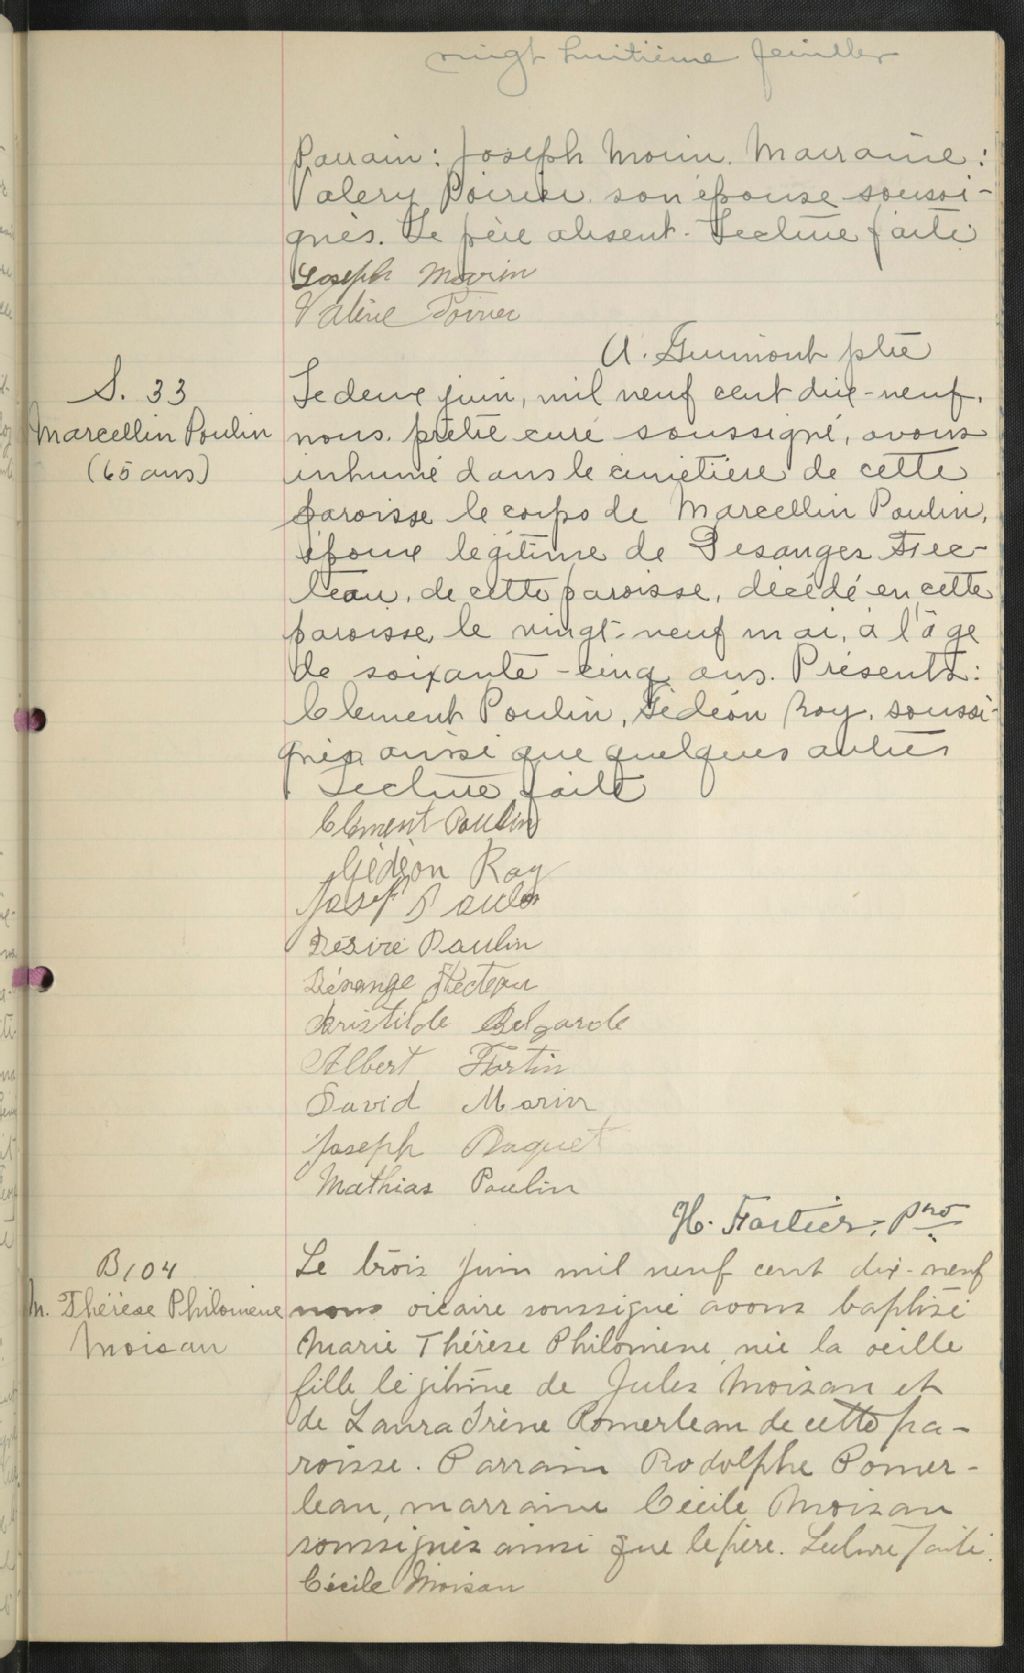 vingt huitième feuillet
Parrain: Joseph Morin. Marraine:
Valery Poirier. son épouse soussi-
gnés. Le père absent. Lecture faite
Joseph Morin
Valérie Poirier
A. Guimont ptre
S. 33
Marcellin Poulin
(65 ans)
Le deux juin, mil neuf cent dix-neuf,
nous, prêtre curé soussigné, avons
inhumé dans le cimetière de cette
paroisse le corps de Marcellin Poulin,
époux légitime de Desanges Fec-
teau, de cette paroisse, décédé en cette
paroisse, le vingt-neuf mai, à l'âge
de soixante-cinq ans. Présents:
Clement Poulin, Gédéon Roy, soussi-
gnés ainsi que quelques autres
Lecture faite
Clément Poulin
Gédéon Roy
Josef Poulin
Désiré Poulin
Désange Fecteau
Aristilde Belgarde
Albert Fortin
David Morin
Joseph Paquet
Mathias Poulin
H. Fortier, Ptre
B 104
M. Thérèse Philomène
Moisan
Le trois juin mil neuf cent dix-neuf
nous vicaire soussigné avons baptisé
Marie Thérèse Philomène, née la veille
fille légitime de Jules Moisan et
de Laura Irène Pomerleau de cette pa-
roisse. Parrain Rodolphe Pomer-
leau, marraine Cécile Moisan
soussignés ainsi que le père. Lecture faite.
Cécile Moisan